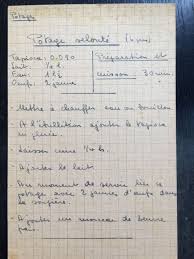 Potage
Potage velouté (4 pers)
Tapioca: 0.080
Lait: ½ l
Eau: 1 l ½
Oeufs: 2 jaune
Préparation et
cuisson 30 min.
- Mettre à chauffer eau ou bouillon
- A l'ébullition ajouter le tapioca
en pluie.
- Laisser cuire ¼ h.
- Ajouter le lait
- Au moment de servir lier le
potage avec 2 jaunes d'œufs dans
la soupière.
- Ajouter un morceau de beurre